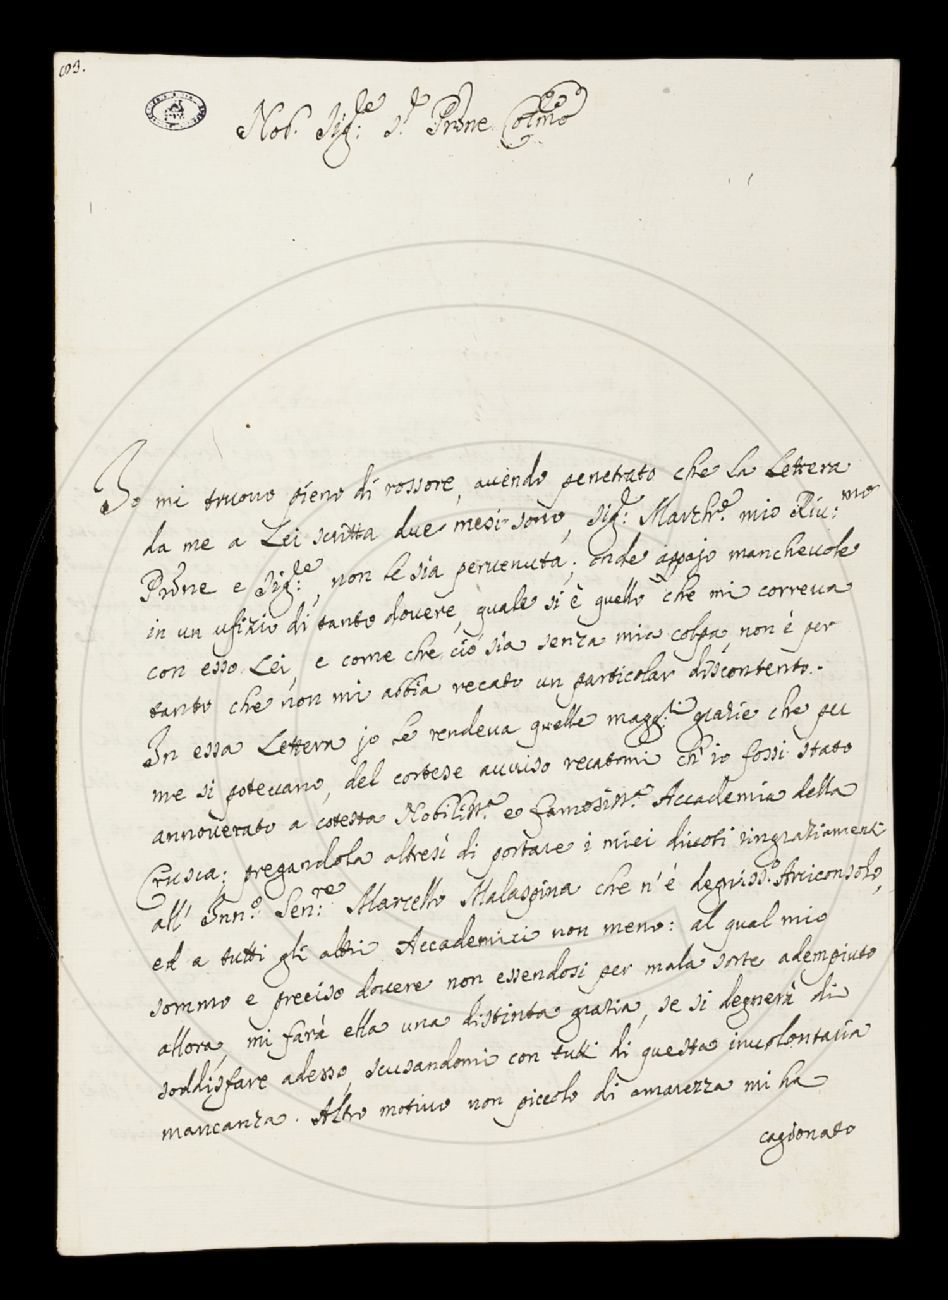 603.
Nob. Sig.re S.r Prōne Colmo
Io mi truovo pieno di rossore, avendo penetrato che la Lettera
da me a Lei scritta due mesi sono, Sig.r March.e mio Riv.mo
Prōne e Sig.re, non le sia pervenuta; onde appajo manchevole
in un ufizio di tanto dovere, quale si è quello che mi correva
con esso Lei, e come che ciò sia senza mia colpa, non è per
tanto che non mi abbia recato un particolar discontento.
In essa Lettera jo Le rendeva quelle magg.ri grazie che pu
me si potevano, del cortese avviso recatomi ch'io fossi stato
annoverato a cotesta Nobiliss.a e famosiss.a Accademia della
Crusca; pregandola altresì di portare i miei divoti ringraziamenti
all' Inn.o Sen.re Marcello Malaspina che n'è degniss.o Arciconsolo,
ed a tutti gli altri Accademici non meno: al qual mio
sommo e preciso dovere non essendosi per mala sorte adempiuto
allora, mi farà ella una distinta grazia, se si degnerà di
soddisfare adesso, scusandomi con tutti di questa involontaria
mancanza. Altro motivo non piccolo di amarezza mi ha
cagionato